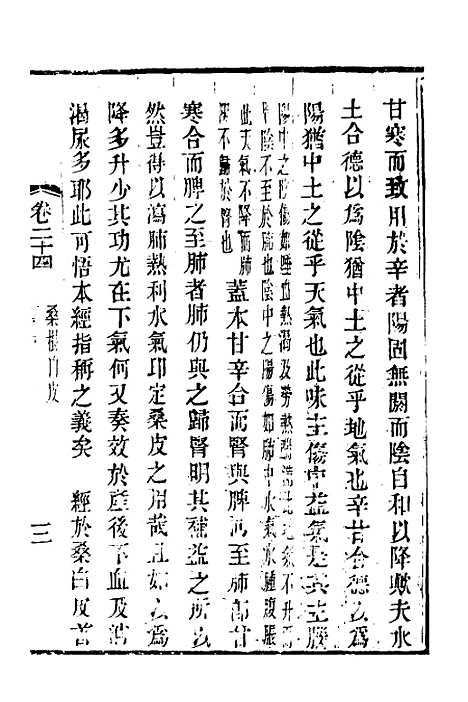 甘寒而致用於辛者陽固無闕而陰自和以降歟夫水
土合德以爲陰猶中土之從乎地氣也辛甘合德以爲
陽猶中土之從乎天氣也此味主傷中益氣是其主腰
陽中之陰傷如唾血熱渴及勞熱
不升而
半陰不至於陰也陰中之陽傷如肺中水氣水腫腹脹
此天氣不降而陽不至於肺
不腎也
蓋本甘辛合而腎與脾
之至肺卽甘
寒合而脾之至肺者肺仍與之歸腎明其補益之所以
然豈得以瀉肺熱利水氣印定桑皮之用哉且如以爲
降多升少其功尤在下氣何又奏效於產後下血及消
渴尿多耶此可悟本經指稱之義矣 經於桑白皮首
卷二十四
桑根白皮
三